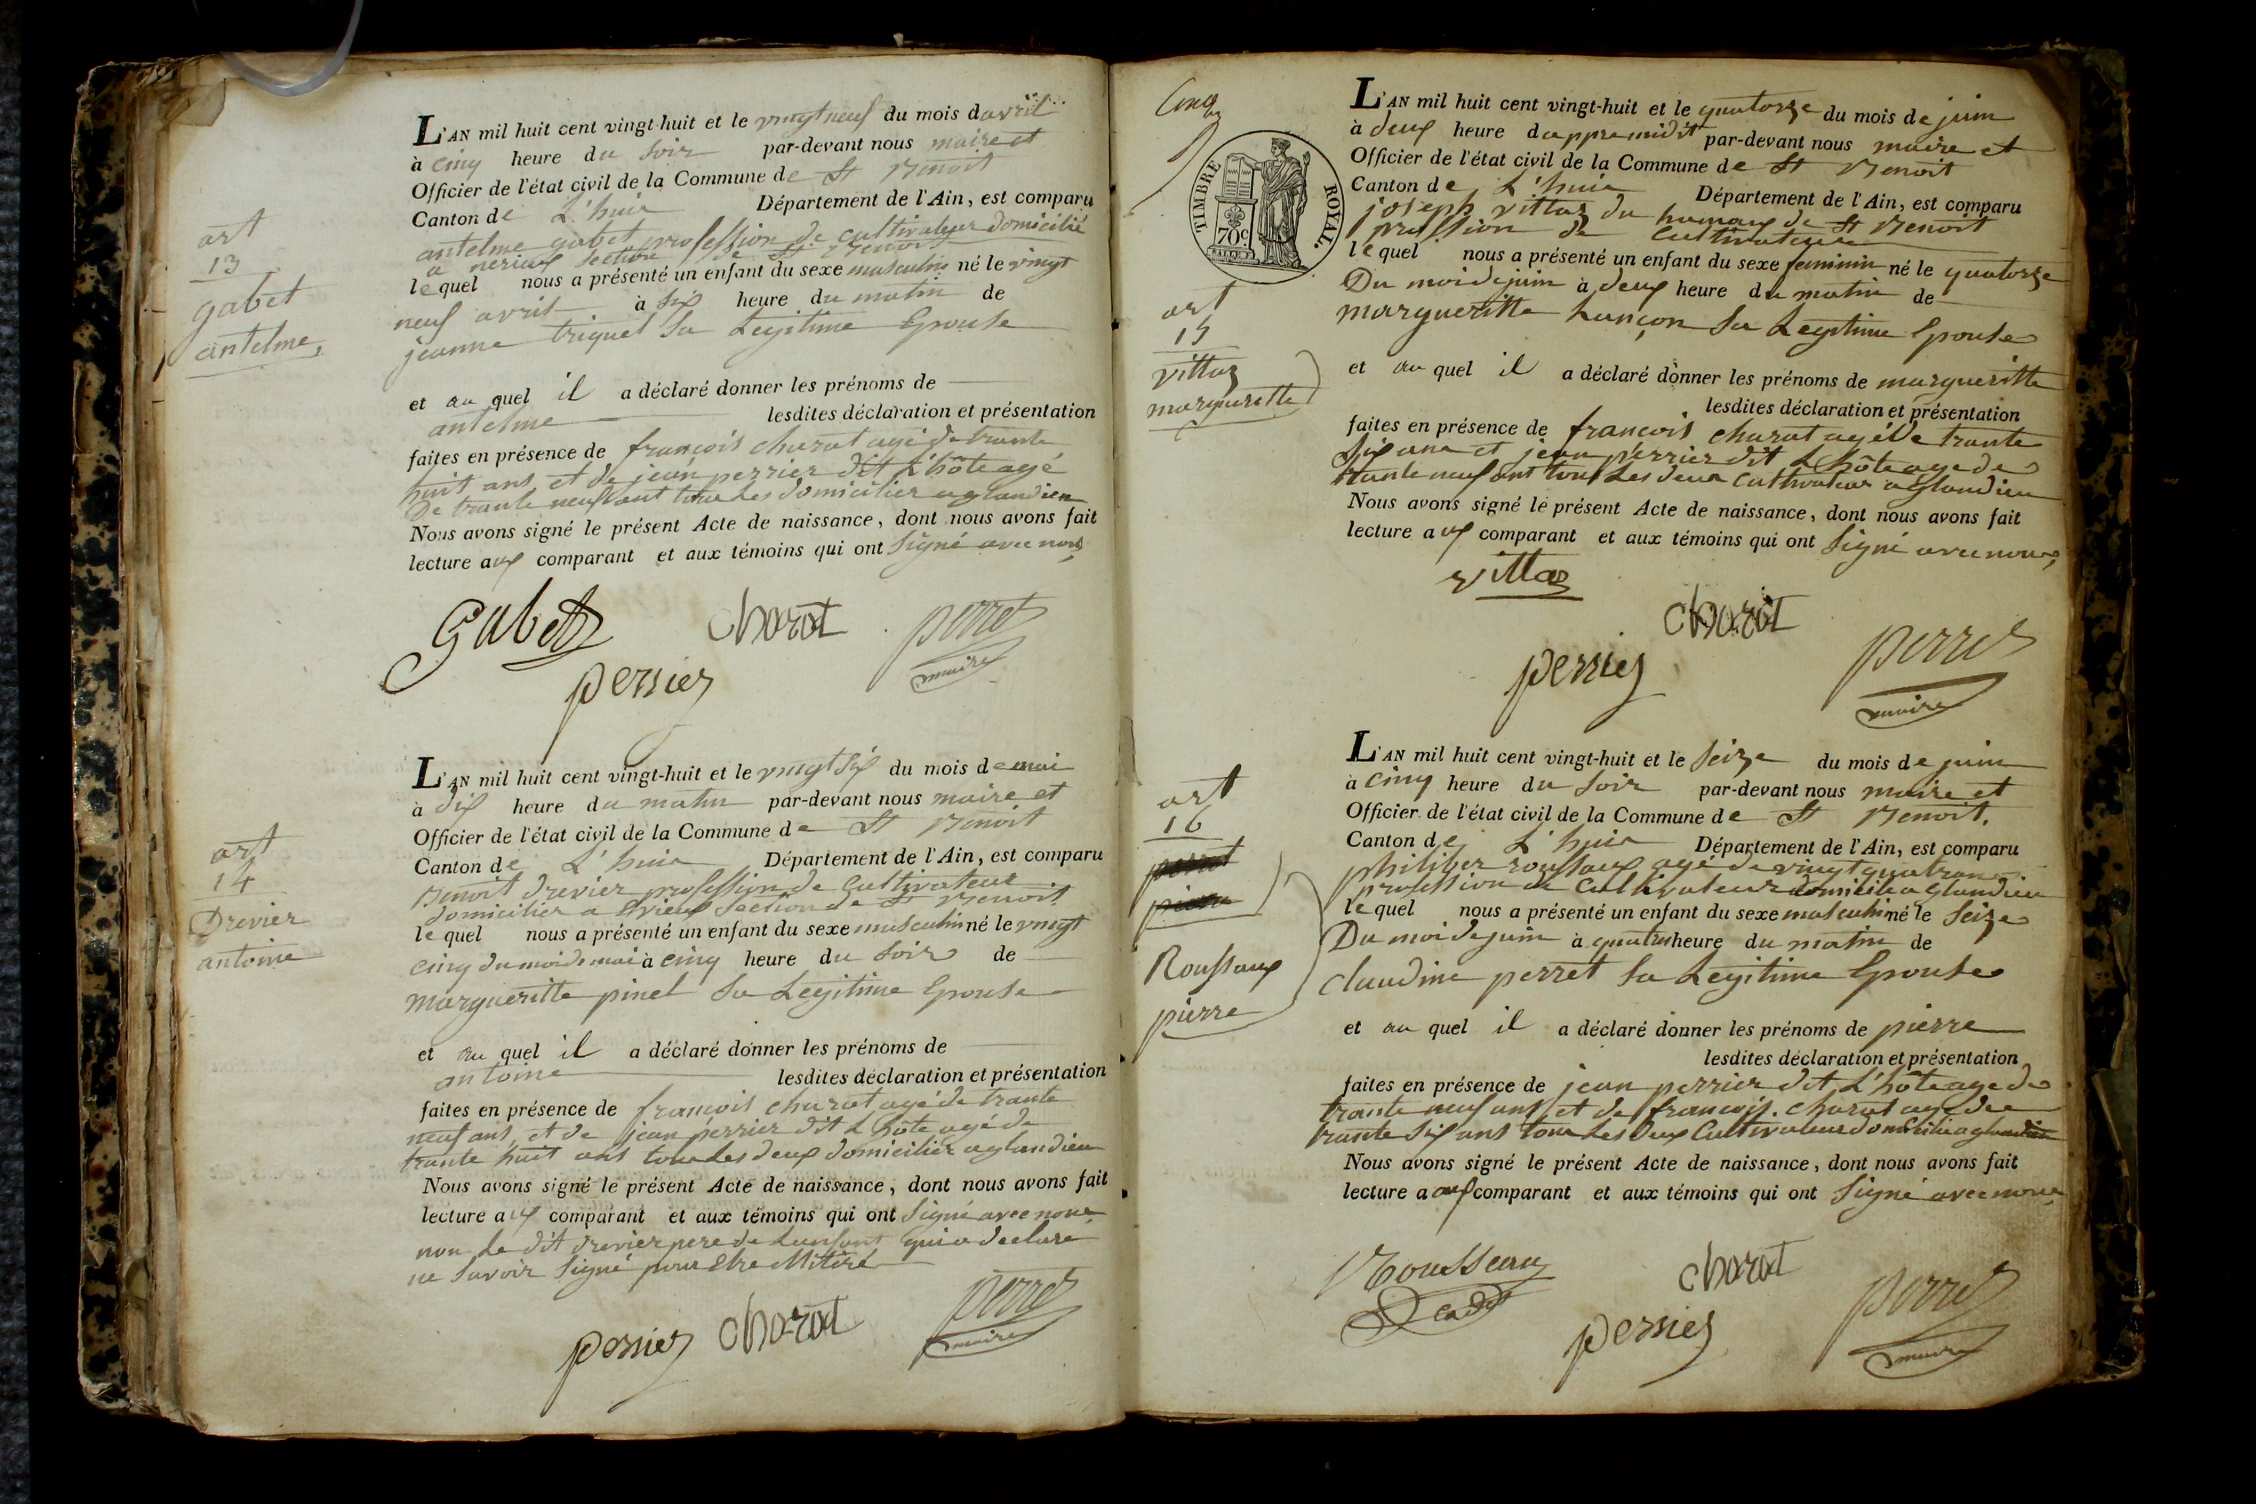 art
13
gabet
antelme
L'AN mil huit cent vingt-huit et le vingt neuf du mois d avril
à cinq heure du soir par-devant nous maire et
Officier de l'état civil de la Commune de St Benoit
Canton de L'huis Département de l'Ain, est comparu
antelme gabet profession de cultivateur domicilié
a section de St Benoit
lequel nous a présenté un enfant du sexe musculin né le vingt
neuf avril à six heure du matin de
jeanne triquet sa Legitime Epouse
et au quel il a déclaré donner les prénoms de
antelme lesdites déclaration et présentation
faites en présence de francois charat agé de trante
huit ans et de jean perrier dit L'hôte agé
De trante neuf ant tous Les domicilier a glandieu
Nous avons signé le présent Acte de naissance, dont nous avons fait
lecture aux comparant et aux témoins qui ont signé avec nous
Gabet charat perret
perrier maire
art
14
Drevier
antoine
L'AN mil huit cent vingt-huit et le vingt six du mois de mai
à dix heure du matin par-devant nous maire et
Officier de l'état civil de la Commune de St Benoit
Canton de L'huis Département de l'Ain, est comparu
Benoit drevier profession de cultivateur
domicilier a section de St Benoit
lequel nous a présenté un enfant du sexe musculin né le vingt
cinq du moi de mai à cinq heure du soir de
margueritte pinel sa Legitime Epouse
et au quel il a déclaré donner les prénoms de
antoine lesdites déclaration et présentation
faites en présence de francois charat agé de trante
neuf ans et de jean perrier dit L'hôte agé de
trante huit ans tous Les deux domicilier a glandieu
Nous avons signé le présent Acte de naissance, dont nous avons fait
lecture aux comparant et aux témoins qui ont signé avec nous
non Le dit drevier pere de L'anfant qui a declare
ne savoir signé pour Etre
perrier charat perret
maire
Cinq
TIMBRE ROYAL.
70c
art
15
vittoz
margueritte
L'AN mil huit cent vingt-huit et le quatorze du mois de juin
à deux heure d appremidit par-devant nous maire et
Officier de l'état civil de la Commune de St Benoit
Canton de L'huis Département de l'Ain, est comparu
joseph vittoz du humaux de St Benoit
profission de cultivateur
lequel nous a présenté un enfant du sexe feminin né le quatorze
Du moi de juin à deux heure du matin de
margueritte hançon sa Legitime Epouse
et au quel il a déclaré donner les prénoms de margueritte
lesdites déclaration et présentation
faites en présence de francois charat agé De trante
six ans et jean perrier dit L'hôte age de
trante neuf ant tous Les deux cultivateur a glandieu
Nous avons signé le présent Acte de naissance, dont nous avons fait
lecture aux comparant et aux témoins qui ont signé avec nous
vittoz
charat
perrier perret
maire
art
16
perret
pierre
Roussaux
pierre
L'AN mil huit cent vingt-huit et le seize du mois de juin
à cinq heure du soir par-devant nous maire et
Officier de l'état civil de la Commune de St Benoit.
Canton de L'huis Département de l'Ain, est comparu
philiber roussaux agé de vingt quatre ans
profession de cultivateur domicilie a glandieu
lequel nous a présenté un enfant du sexe musculin né le seize
Du moi de juin à quatre heure du matin de
claudine perret sa Legitime Epouse
et au quel il a déclaré donner les prénoms de pierre
lesdites déclaration et présentation
faites en présence de jean perrier dit L'hôte age de
trante neuf ans et de francois charat age de
trante six ans tous Les deux Cultivateur domicilie a glandieu
Nous avons signé le présent Acte de naissance, dont nous avons fait
lecture a aux comparant et aux témoins qui ont signé avec nous
Rousseaux charat
perrier perret
maire